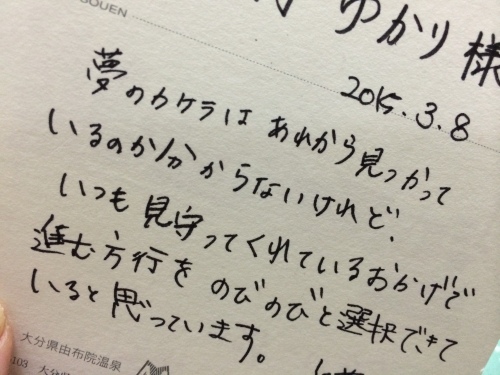 GOUEN
ゆかり様
2015.3.8
夢のカケラは あれから見つかって
いるのか分からないけれど、
いつも 見守ってくれているおかげで
進む方行を のびのびと選択できて
いると思っています。
大分県由布院温泉